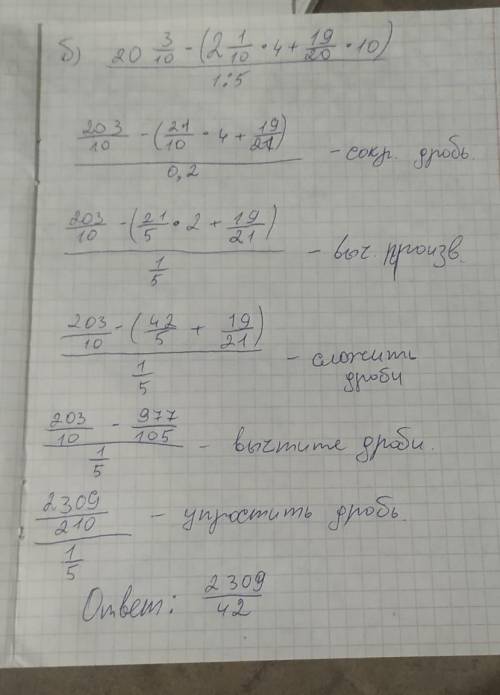 б) 20 3/10 - (2 1/10 • 4 + 19/20 • 10)
1:5
203/10 - (21/10 • 4 + 19/21)
0,2
- сокр. дробь.
203/10 - (21/5 • 2 + 19/21)
1/5
- выч. произв.
203/10 - (42/5 + 19/21)
1/5
- сложить
дроби
203/10 - 977/105
1/5
- вычтите дроби.
2309/210
1/5
- упростить дробь.
Ответ: 2309/42